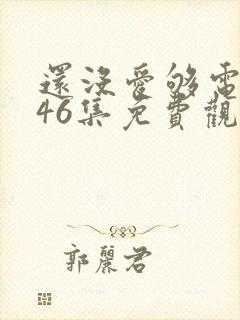 還沒愛够電
46集免費觀
郭麗君